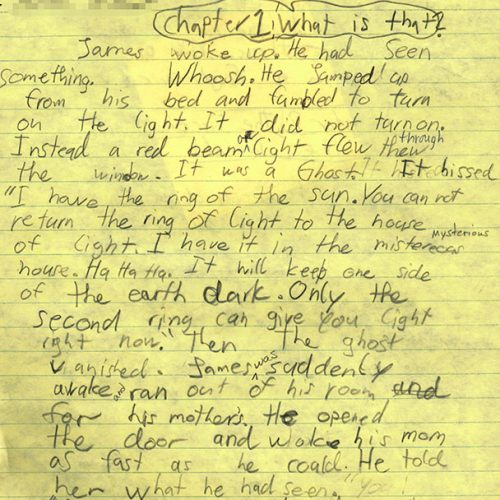 Chapter 1, What is that?
James woke up. He had seen
something. Whoosh. He Jumped up
from his bed and fumbled to turn
on the light. It did not turn on.
Instead a red beam of light flew thew through
the window. It was a Ghost. It hissed
"I have the ring of the sun. You can not
return the ring of light to the house
of light. I have it in the mistereous Mysterious
house. Ha Ha Ha. It will keep one side
of the earth dark. Only the
second ring can give you light
right now." Then the ghost
vanished. James was suddenly
awake and ran out of his room and
for his mother's. He opened
the door and woke his mom
as fast as he could. He told
her what he had seen.